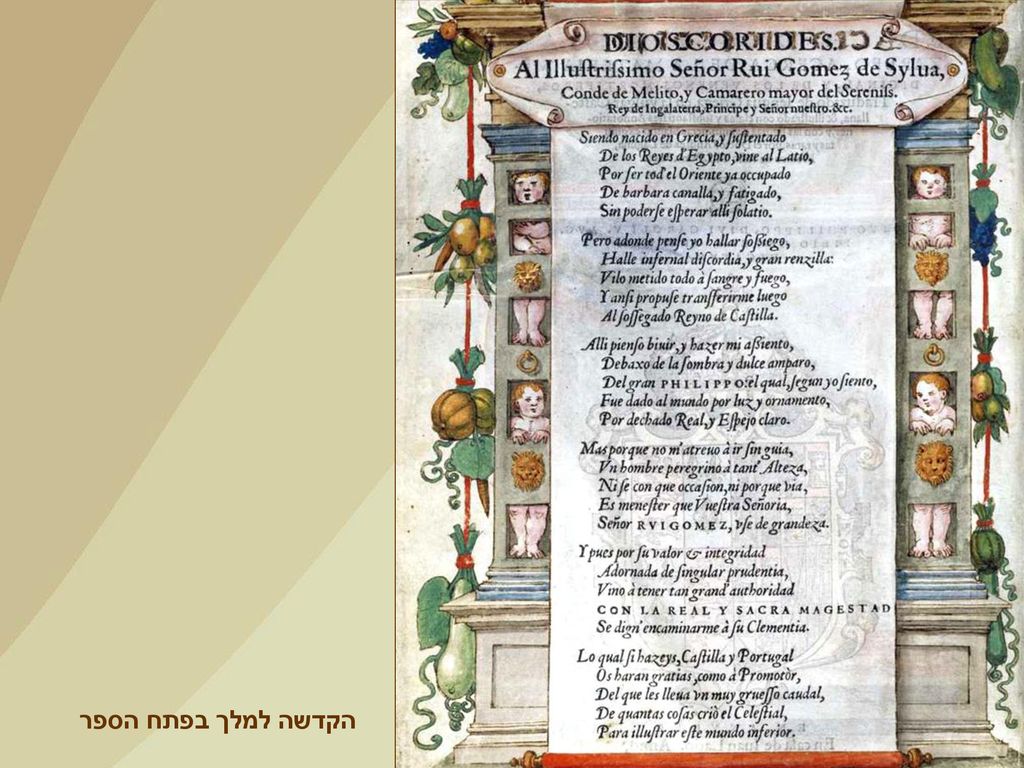 DIOSCORIDES.
Al Illuſtriſsimo Señor Rui Gomez de Sylua,
Conde de Melito, y Camarero mayor del Sereniſs.
Rey de Ingalaterra, Principe y Señor nueſtro. &c.
Siendo nacido en Grecia, y ſuſtentado
De los Reyes d'Egypto, vine al Latio,
Por ſer tod' el Oriente ya occupado
De barbara canalla, y fatigado,
Sin poderſe eſperar alli ſolatio.
Pero adonde penſe yo hallar ſoſsiego,
Halle infernal diſcordia, y gran renzilla:
Vilo metido todo à ſangre y fuego,
Y anſi propuſe transferirme luego
Al ſoſſegado Reyno de Caſtilla.
Alli pienſo biuir, y hazer mi aſsiento,
Debaxo de la ſombra y dulce amparo,
Del gran PHILIPPO: el qual, ſegun yo ſiento,
Fue dado al mundo por luz y ornamento,
Por dechado Real, y Eſpejo claro.
Mas porque no m'atreuo à ir ſin guia,
Vn hombre peregrino à tant' Alteza,
Ni ſe con que occaſion, ni porque via,
Es meneſter que Vueſtra Señoria,
Señor RVI GOMEZ, vſe de grandeza.
Y pues por ſu valor & integridad
Adornada de ſingular prudentia,
Vino à tener tan grand' authoridad
CON LA REAL Y SACRA MAGESTAD
Se dign' encaminarme à ſu Clementia.
Lo qual ſi hazeys, Caſtilla y Portugal
Os haran gratias, como à Promotòr,
Del que les lleua vn muy grueſſo caudal,
De quantas coſas criò el Celeſtial,
Para illuſtrar eſte mundo inferior.
הקדשה למלך בפתח הספר